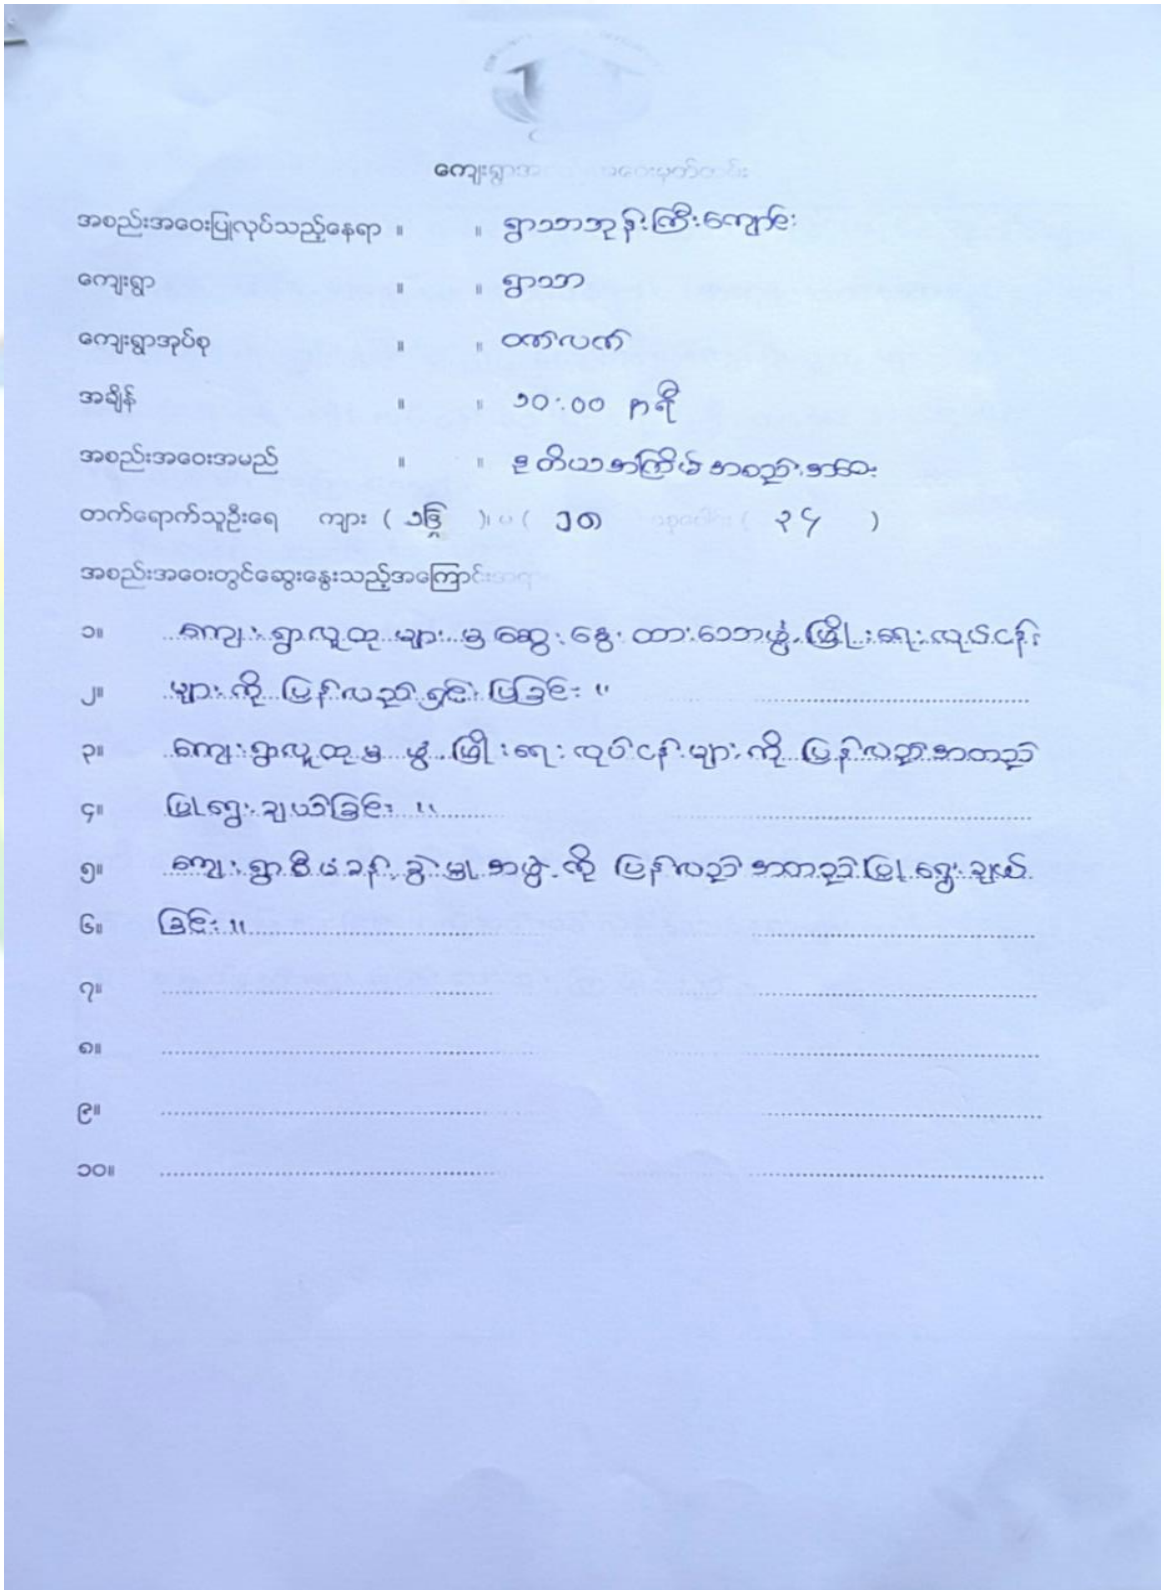 ကျေးရွာအ
အစည်းအဝေးပြုလုပ်သည့်နေရာ ။ ။ ရွာသာဘုန်းကြီးကျောင်း
ကျေးရွာ ။ ။ ရွာသာ
ကျေးရွာအုပ်စု ။ ။ ဝဏ်လဏ်
အချိန် ။ ။ ၁၀:၀၀ နာရီ
အစည်းအဝေးအမည် ။ ။ ဒုတိယအကြိမ်အစည်းအဝေး
တက်ရောက်သူဦးရေ ကျား ( )၊ မ ( ၂၈ ( ၃၄ )
အစည်းအဝေးတွင်ဆွေးနွေးသည့်အကြောင်းအရာ
၁။ ကျေးရွာလူထုများမှ ဆွေးနွေးထားသောဖွံ့ဖြိုးရေးလုပ်ငန်း
၂။ များကို ပြန်လည်ရှင်းပြခြင်း ။
၃။ ကျေးရွာလူထုမှ ဖွံ့ဖြိုးရေးလုပ်ငန်းများကို ပြန်လည်အတည်
၄။ ပြုရွေးချယ်ခြင်း ။
၅။ ကျေးရွာစီမံခန့်ခွဲမှုအဖွဲ့ကို ပြန်လည်အတည်ပြုရွေးချယ်
၆။ ခြင်း ။
၇။
၈။
၉။
၁၀။